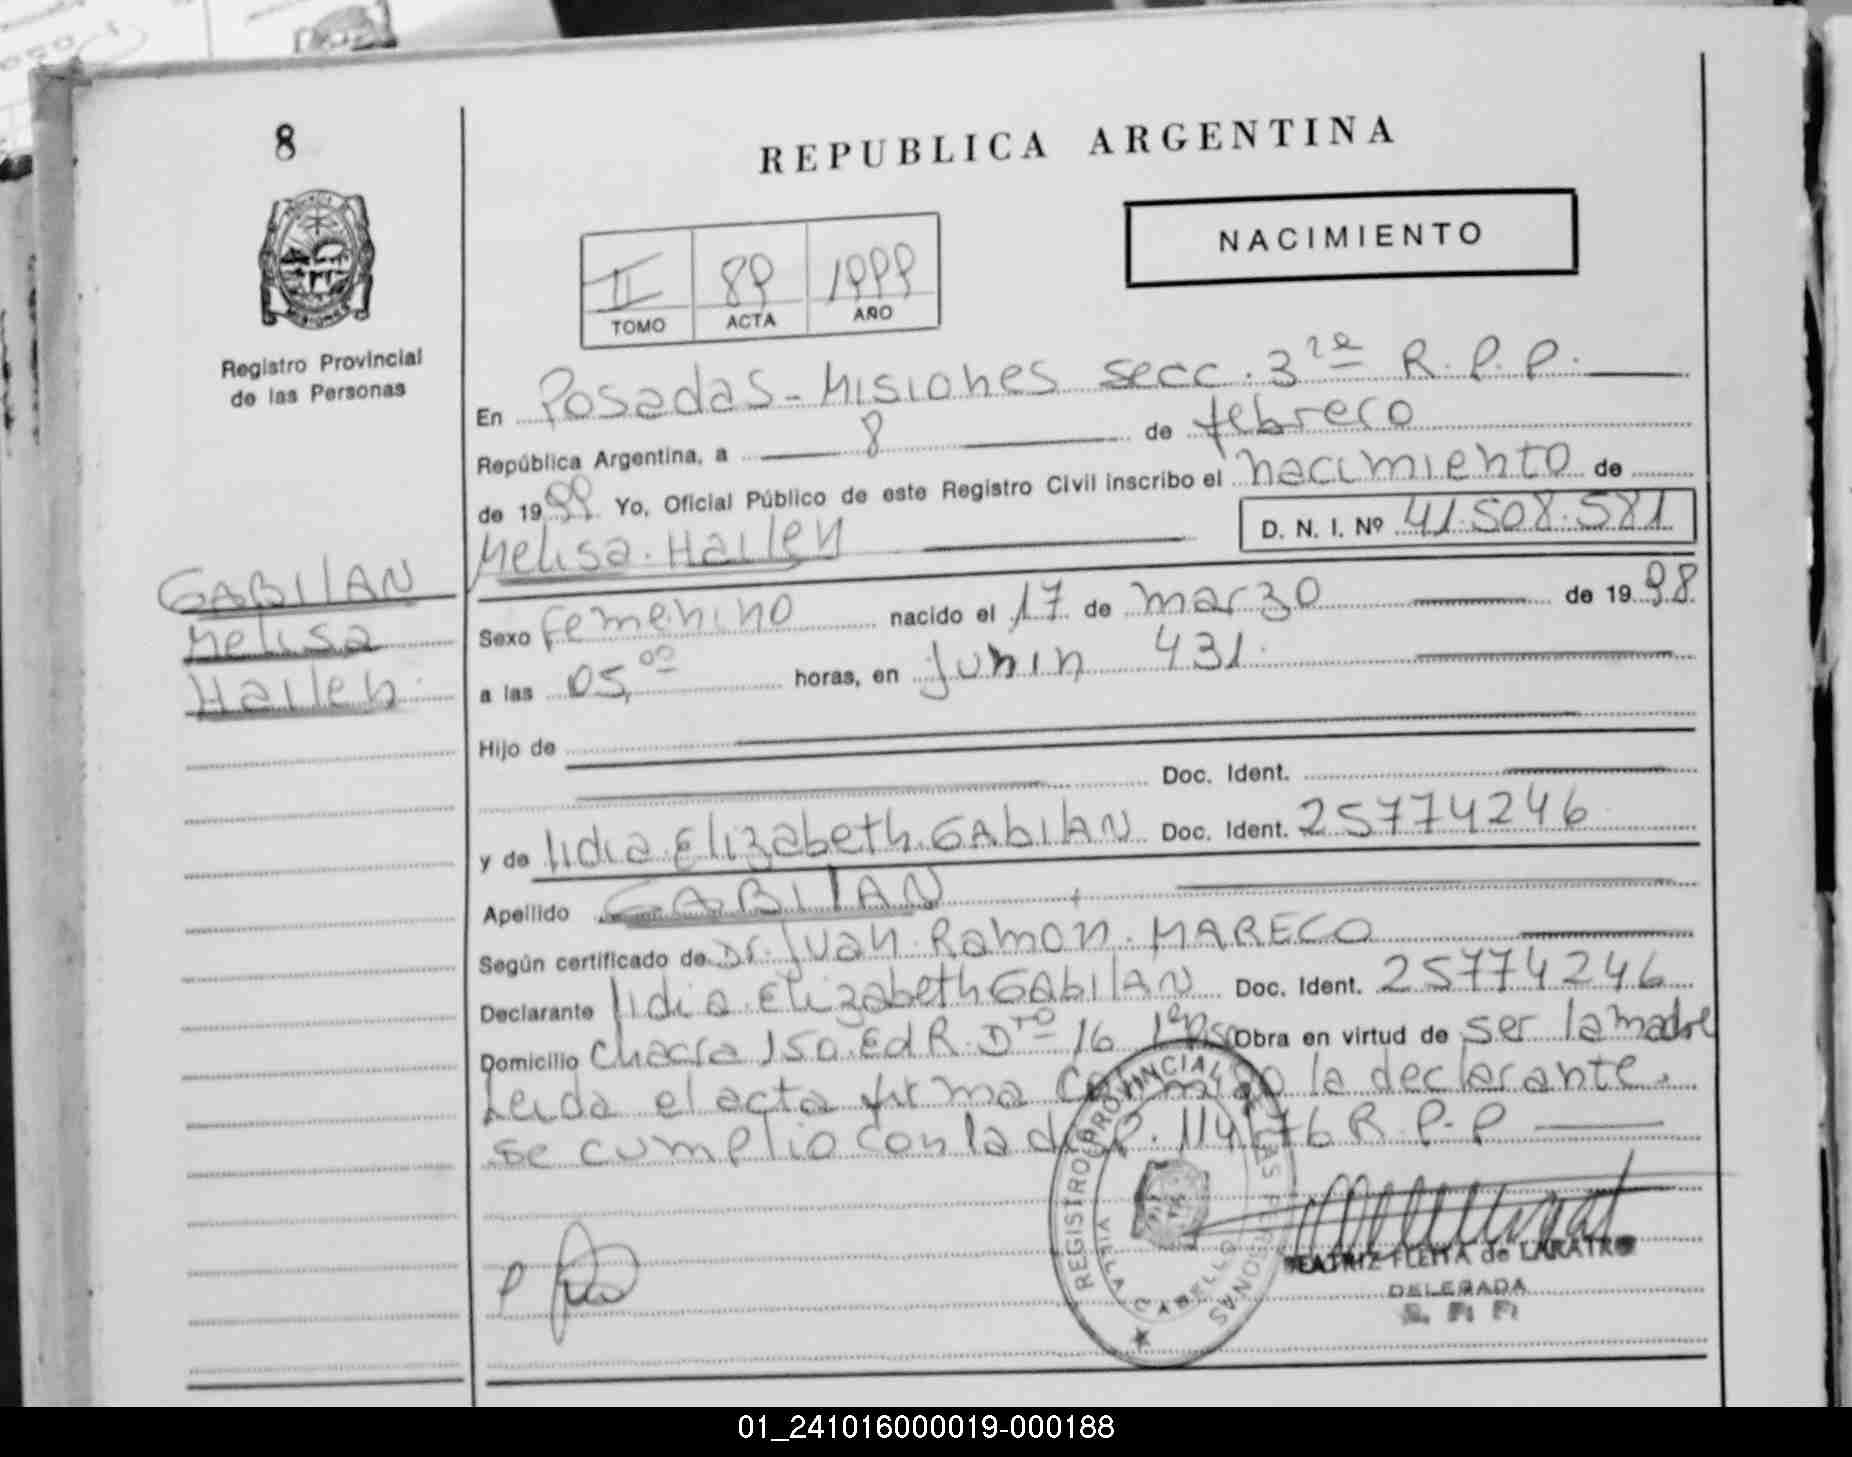 8
REPUBLICA ARGENTINA
NACIMIENTO
II 89 1999
TOMO ACTA AÑO
Registro Provincial
de las Personas
En Posadas - Misiones secc. 3ra R.P.P.
República Argentina, a 8 de febrero
de 1999 Yo, Oficial Público de este Registro Civil inscribo el nacimiento de
Melisa Hailen D. N. I. Nº 41.508.581
GABILAN
Melisa
Hailen
Sexo femenino nacido el 17 de marzo de 1998
a las 05,00 horas, en Junin 431.
Hijo de
Doc. Ident.
y de lidia Elizabeth GAbilAN Doc. Ident. 25774246
Apellido GABILAN
Según certificado de Dr. Juan Ramon MARECO
Declarante lidia Elizabeth GAbilAN Doc. Ident. 25774246
Domicilio Chacra 150 Ed R. Dto 16 1º Obra en virtud de ser la madre
Leida el acta firma conmigo la declarante.
se cumplio con la disp. 114/76 R.P.P
REGISTRO PROVINCIAL DE LAS PERSONAS
VILLA CABELLO
BEATRIZ FLEITA de LARATRO
DELEGADA
01_241016000019-000188